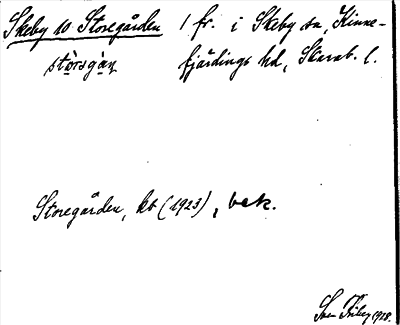 Skeby 10 Storegården 1 fr. i Skeby sn, Kinne-
störsgàṇ fjärdings hd, Skarab. l.
Storegården, kt (1923), bek.
Sven Friberg 1928.